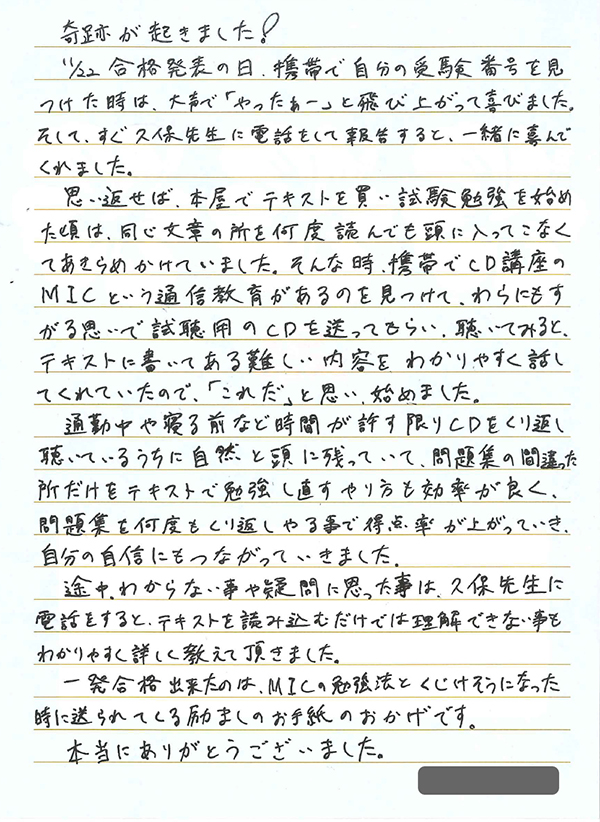 奇跡が起きました!
11/22 合格発表の日、携帯で自分の受験番号を見
つけた時は、大声で「やったぁー」と飛び上がって喜びました。
そして、すぐ久保先生に電話をして報告すると、一緒に喜んで
くれました。
思い返せば、本屋でテキストを買い試験勉強を始め
た頃は、同じ文章の所を何度読んでも頭に入ってこなく
てあきらめかけていました。そんな時、携帯でCD講座の
MICという通信教育があるのを見つけて、わらにもす
がる思いで試聴用のCDを送ってもらい、聴いてみると、
テキストに書いてある難しい内容をわかりやすく話し
てくれていたので、「これだ」と思い、始めました。
通勤中や寝る前など時間が許す限りCDをくり返し
聴いているうちに自然と頭に残っていて、問題集の間違った
所だけをテキストで勉強し直すやり方も効率が良く、
問題集を何度もくり返しやる事で得点率が上がっていき、
自分の自信にもつながっていきました。
途中、わからない事や疑問に思った事は、久保先生に
電話をすると、テキストを読み込むだけでは理解できない事も
わかりやすく詳しく教えて頂きました。
一発合格出来たのは、MICの勉強法とくじけそうになった
時に送られてくる励ましのお手紙のおかげです。
本当にありがとうございました。